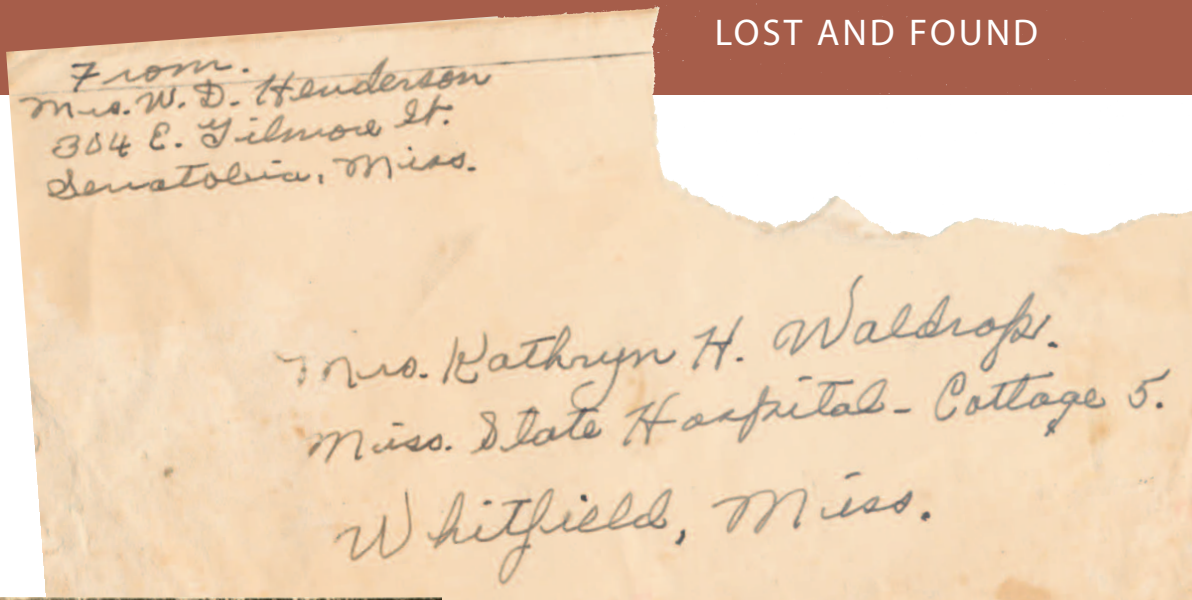 LOST AND FOUND
From.
Mrs. W. D. Henderson
304 E. Gilmore St.
Senatobia, Miss.
Mrs. Kathryn H. Waldrop.
Miss. State Hospital - Cottage 5.
Whitfield, Miss.